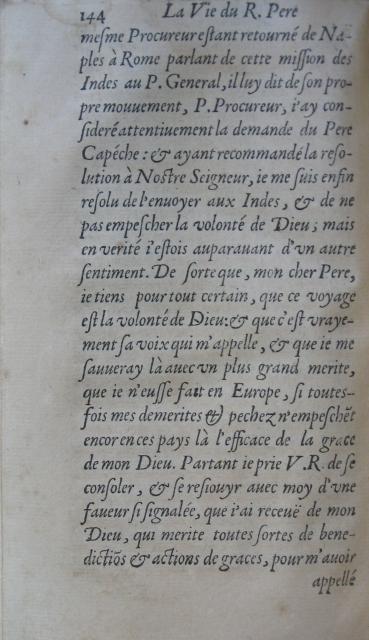 144 La Vie du R. Pere
meſme Procureur eſtant retourné de Na-
ples à Rome parlant de cette miſſion des
Indes au P. General, il luy dit de ſon pro-
pre mouuement, P. Procureur, i'ay con-
ſideré attentiuement la demande du Pere
Capéche : & ayant recommandé la reſo-
lution à Noſtre Seigneur, ie me ſuis enfin
reſolu de l'enuoyer aux Indes, & de ne
pas empeſcher la volonté de Dieu ; mais
en verité i'eſtois auparauant d'vn autre
ſentiment. De ſorte que, mon cher Pere,
ie tiens pour tout certain, que ce voyage
eſt la volonté de Dieu: & que c'eſt vraye-
ment ſa voix qui m'appelle, & que ie me
ſauueray là auec vn plus grand merite,
que ie n'euſſe fait en Europe, ſi toutes-
fois mes demerites & pechez n'empeſchẽt
encor en ces pays là l'efficace de la grace
de mon Dieu. Partant ie prie V.R. de ſe
conſoler, & ſe reſiouyr auec moy d'vne
faueur ſi ſignalée, que i'ai receuë de mon
Dieu, qui merite toutes ſortes de bene-
dictiõs & actions de graces, pour m'auoir
appellé